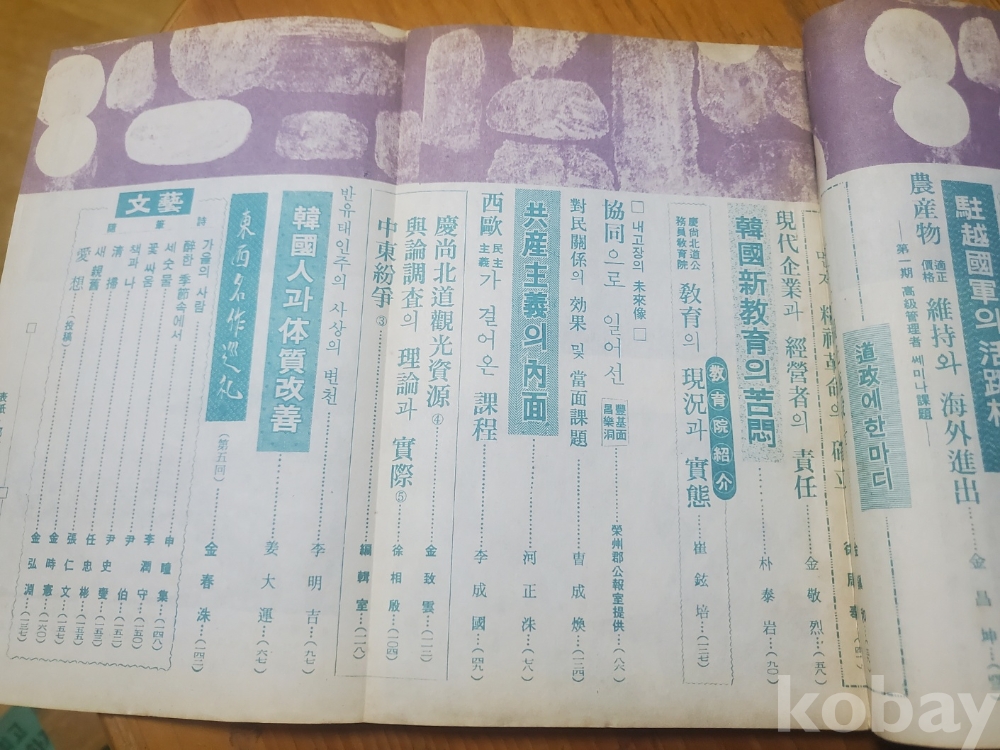 駐越國軍의 活躍相
農産物 適正價格 維持와 海外進出
― 第一期 高級管理者 쎄미나課題 ―
金昌坤
道政에한마디
精神革命의 確立
現代企業과 經營者의 責任 金敬烈…(五八)
韓國新敎育의苦悶 朴泰岩…(九〇)
敎育院紹介
慶尙北道公務員敎育院 敎育의 現況과 實態 崔鉉培…(三七)
□ 내고장의 未來像 □
協同으로 일어선 豐基面昌樂洞 榮州郡公報室提供…(八六)
對民關係의 効果 및 當面課題 曺成煥…(三四)
共産主義의內面 河正洙…(七八)
西歐民主主義가 걸어온 課程 李成國…(四九)
慶尙北道觀光資源④ 金致雲…(二二)
輿論調査의 理論과 實際⑤ 徐相殷…(二四)
中東紛爭③ 編輯室…(二八)
반유태인주의 사상의 변천 李明吉…(九七)
韓國人과体質改善 姜大運…(六七)
東西名作巡礼 (第五回) 金春洙…(一四二)
文藝
詩 가을의 사람 申瞳集…(一四八)
醉한 季節속에서 李潤守…(一五〇)
隨筆 세숫물 尹伯
꽃싸움 尹史燮…(一五三)
책과 나 任忠彬
淸掃 張仁文…(一五七)
새 親舊 金時憲…(一六〇)
愛想 (投稿) 金弘淵
表紙
kobay